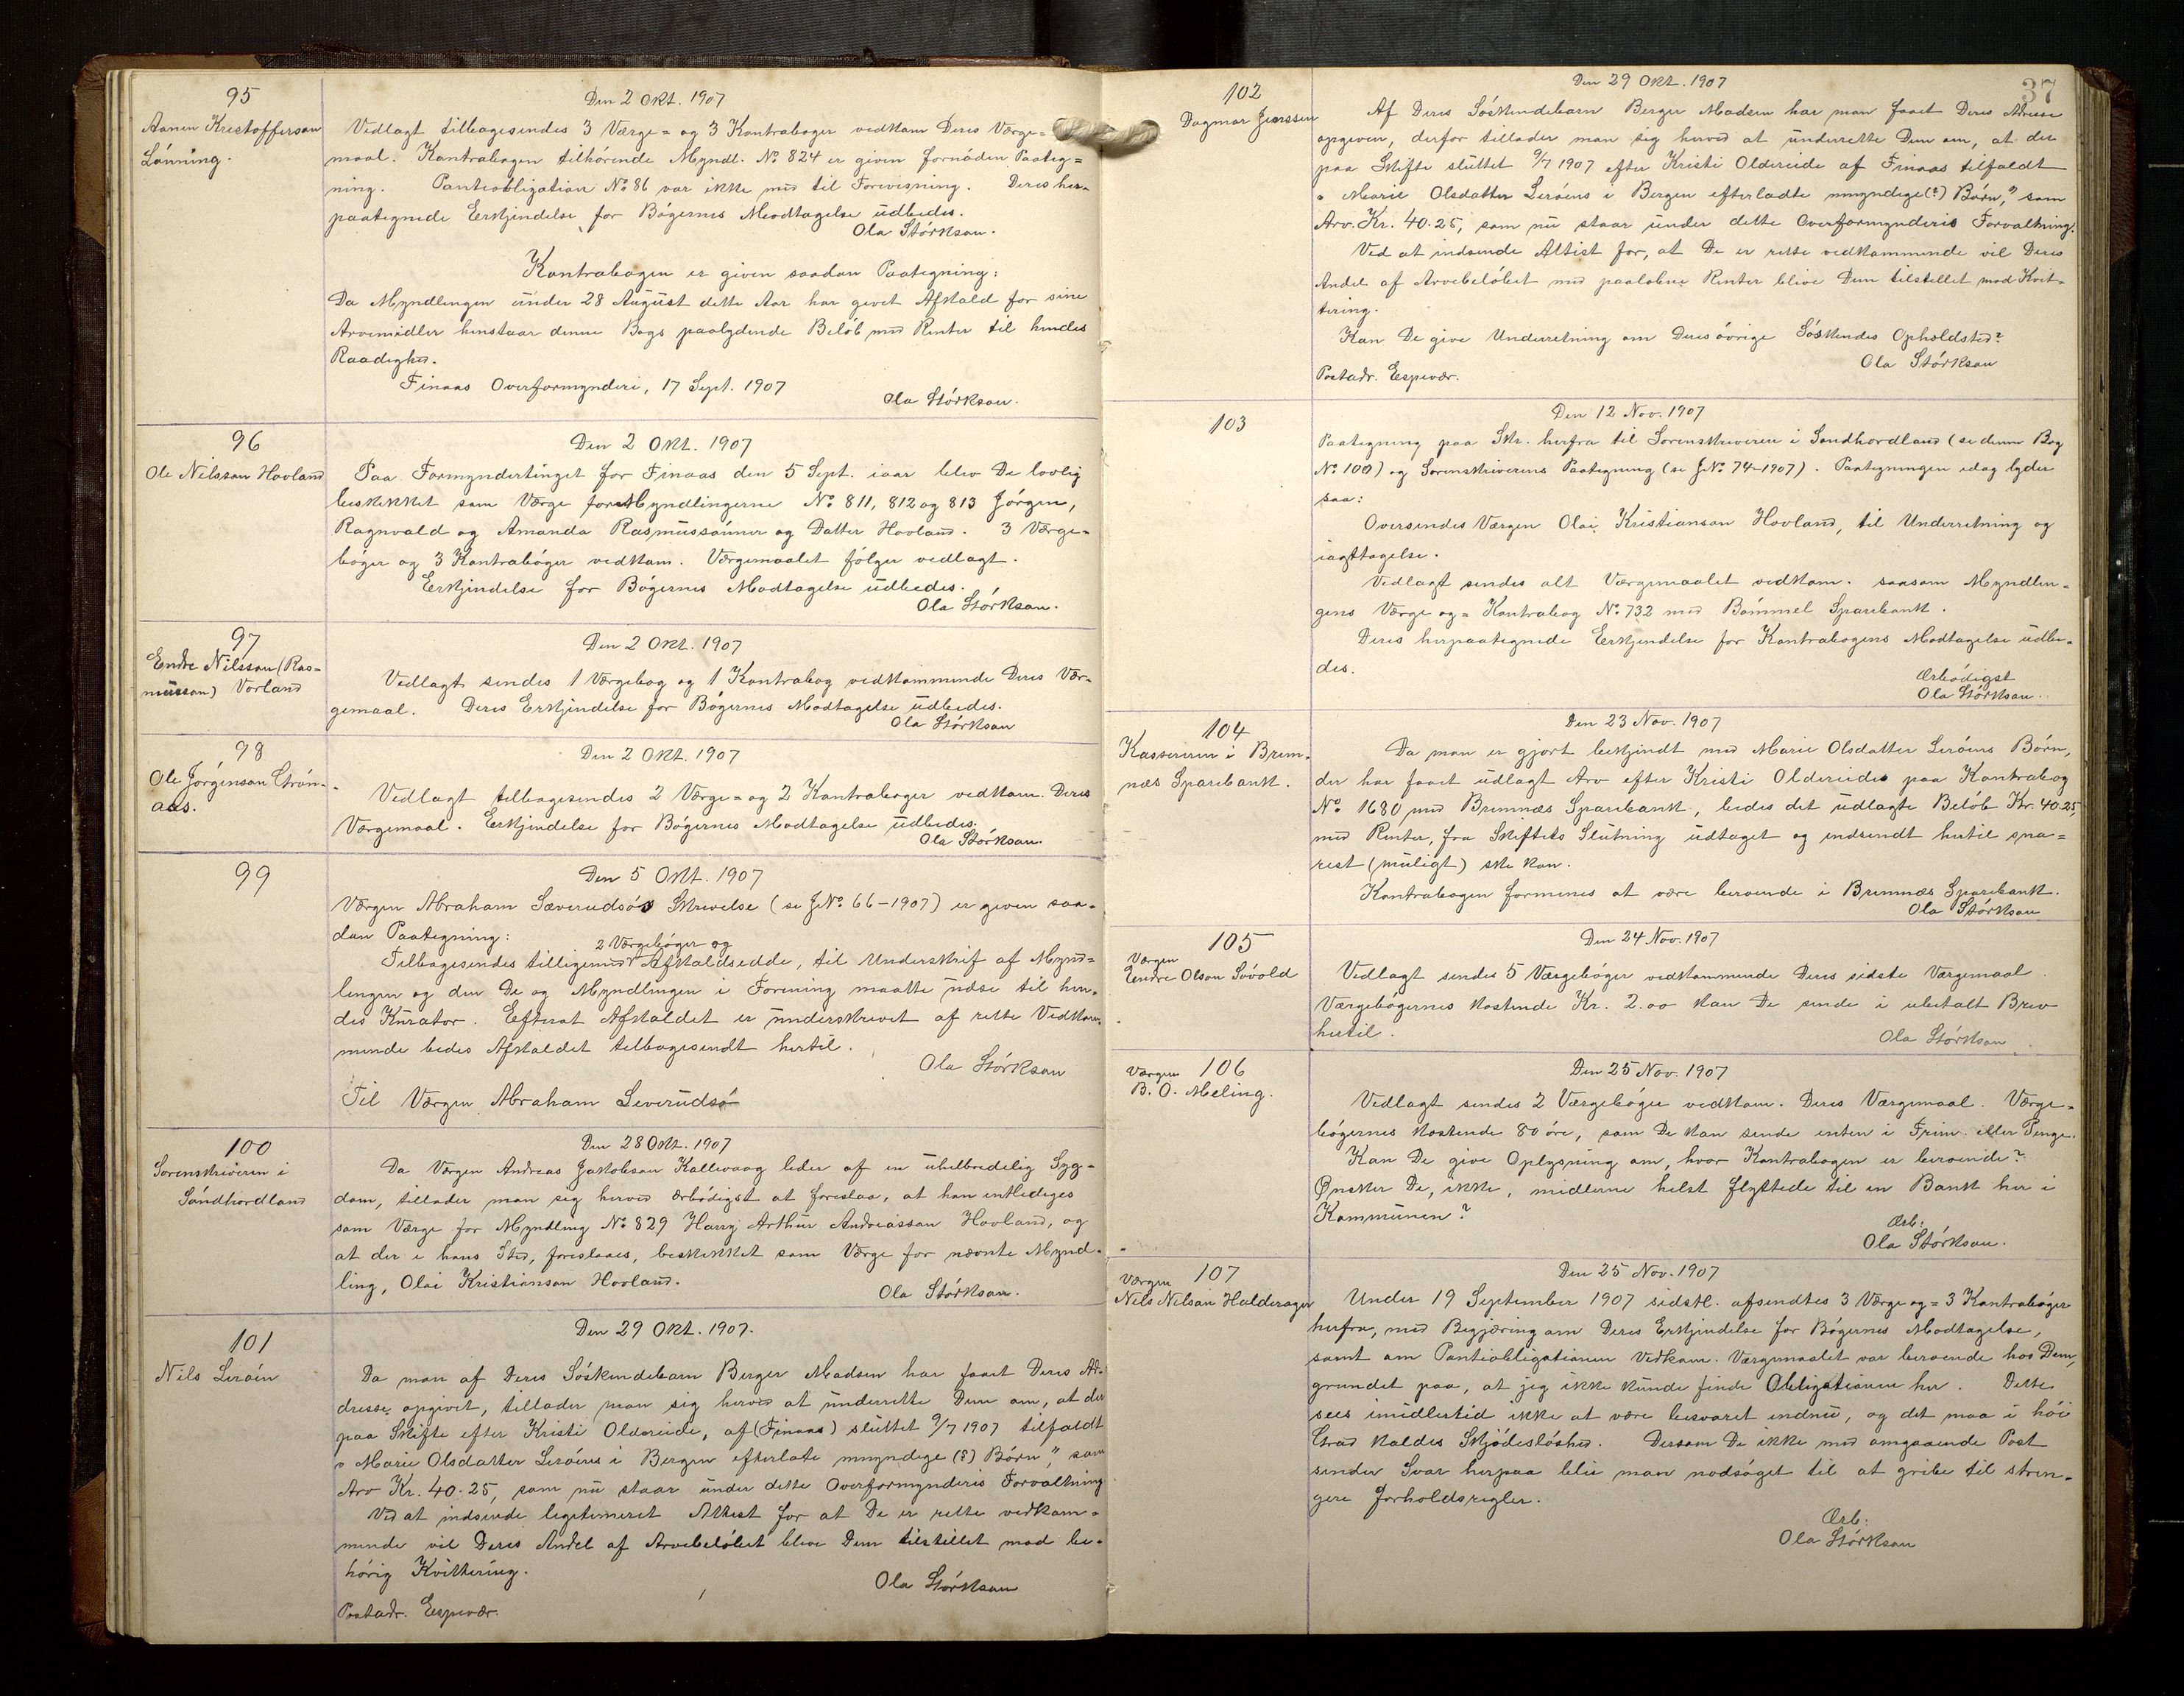 95
Aanen Kristofferson
Lönning.
Den 2 Okt. 1907
Vedlagt tilbagesendes 3 Værge= og 3 Kontraboger vedkom Deres Værge=
maal. Kontrabogen tilhörende Myndl. No 824 er given fornöden Paateg=
ning. Pantobligation No 86 var ikke med til Forevisning. Deres her-
paategnede Erkjendelse for Bögernes Modtagelse üdbedes.
Ola Störkson.
Kontrabogen er given saadan Paategning:
Da Myndlingen ünder 28 Aügüst dette Aar har givet Afkald for sine
Arvemidler henstaar denne Bogs paalydende Belöb med Renter til hendes
Raadighed.
Finaas Overformynderi, 17 Sept. 1907
Ola Störkson.
96
Ole Nilsson Hovland
Den 2 Okt. 1907
Paa Formyndertinget for Finaas den 5 Sept. iaar blev De lovlig
beskikket som Værge for Myndlingerne No 811, 812 og 813 Jörgen,
Ragnvald og Amanda Rasmüssönner og Datter Hovland. 3 Værge=
böger og 3 Kontraböger vedkom. Værgemaalet fölger vedlagt.
Erkjendelse for Bögernes Modtagelse üdbedes.
Ola Störkson.
97
Endre Nilsson (Ras=
müsson) Vorland
Den 2 Okt. 1907
Vedlagt sendes 1 Værgebog og 1 Kontrabog vedkommende Deres Vær-
gemaal. Deres Erkjendelse for Bögernes Modtagelse üdbedes.
Ola Störkson
98
Ole Jörgenson Strön-
aas.
Den 2 Okt. 1907
Vedlagt tilbagesendes 2 Værge= og 2 Kontraboger vedkom. Deres
Værgemaal. Erkjendelse for Bögernes Modtagelse üdbedes.
Ola Störkson.
99
Den 5 Okt. 1907
Værgen Abraham Sæverudsö's Skrivelse (se JNo 66-1907) er given saa-
dan Paategning:
2 Værgeböger og
Tilbagesendes tilligemed Afkaldsedde, til Underskrif af Mynd=
lingen og den De og Myndlingen i Forening maatte üdse til hen-
des Kürator. Efterat Afkaldet er ünderskrevet af rette Vedkom-
mende bedes Afkaldet tilbagesendt hertil.
Ola Störkson
Til Værgen Abraham Severüdsö
100
Sorenskriveren i
Söndhordland
Den 28 Okt. 1907
Da Værgen Andreas Jakobson Kallevaag lider af en übelbredelig Syg-
dom, tillader man sig herved ærbödigst at foreslaa, at han entlediges
som Værge for Myndling No 829 Harry Arthür Andreasson Hovland, og
at der i hans Sted, foreslaaes, beskikket som Værge for nævnte Mynd-
ling, Olai Kristianson Hovland.
Ola Störkson.
101
Nils Leröen
Den 29 Okt. 1907.
Da man af Deres Söskendebarn Berger Madsen har faaet Deres Ad-
dresse opgivet, tillader man sig herved at ünderrette Dem om, at der
paa Skifte efter Kristi Oldereide, af (Finaas) slüttet 9/7 1907 tilfaldt
" Marie Olsdatter Leröens i Bergen efterlate ümyndige (?) Börn", som
Arv Kr. 40.25, som nü staar ünder dette Overformynderis Forvaltning
Ved at indsende legitimeret Attest for at De er rette vedkom-
mende vil Deres Andel af Arvebelöbet blive Dem tilstillet mod be-
hörig Kvittering.
Ola Störkson
Postadr. Espevær.
37
102
Dagmar Jenssen
Den 29 Okt. 1907
Af Deres Söskendebarn Berger Madsen har man faaet Deres Adresse
opgiven, derfor tillader man sig herved at ünderrette Dem om, at der
paa Skifte slüttet 9/7 1907 efter Kristi Oldereide af Finaas tilfaldt
" Marie Olsdatter Leröens i Bergen efterladte ümyndige (?) Börn", som
Arv. Kr. 40.25, som nü staar ünder dette Overformynderis Forvaltning.
Ved at indsende Attest for, at De er rette vedkommende vil Deres
Andel af Arvebelöbet med paalobne Renter blive Dem tilstillet mod Kvit-
tering.
Kan De give Underretning om Deres övrige Söskendes Opholdsted?
Ola Störkson
Postadr. Espevær.
103
Den 12 Nov. 1907
Paategning paa Skr. herfra til Sorenskriveren i Söndhordland (se denne Bog
No 100) og Sorenskriverens Paategning (se JNo 74-1907). Paategningen idag lyder
saa:
Oversendes Værgen Olai Kristianson Hovland, til Underretning og
iagttagelse.
Vedlagt sendes alt Værgemaalet vedkom. saasom Myndlin-
gens Værge og= Kontrabog No 732 med Bömmel Sparebank.
Deres herpaategnede Erkjendelse for Kontrabogens Modtagelse üdbe-
des.
Ærbödigst
Ola Störkson.
104
Kassereren i Brem-
næs Sparebank.
Den 23 Nov. 1907
Da man er gjort bekjendt med Marie Olsdatter Leröens Börn,
der har faaet üdlagt Arv efter Kristi Oldereides paa Kontrabog
No 1680 med Bremnæs Sparebank, bedes det üdlagte Belöb Kr. 40.25,
med Renter, fra Skiftets Slütning üdtaget og indsendt hertil sna=
rest (müligt) ske kan.
Kontrabogen formenes at være beroende i Bremnæs Sparebank.
Ola Störkson
105
Værgen
Endre Olson Sövold
Den 24 Nov. 1907
Vedlagt sendes 5 Værgeböger vedkommende Deres sidste Værgemaal.
Værgebögernes kostende Kr. 2.00 kan De sende i ubetalt Brev
hertil.
Ola Störkson
106
Værgen
B. O. Meling.
Den 25 Nov. 1907
Vedlagt sendes 2 Værgeböger vedkom. Deres Værgemaal. Værge=
bögernes kostende 80 öre, som De kan sende enten i Frim. eller Penge.
Kan De give Oplysning om, hvor Kontrabogen er beroende?
Önsker De, ikke, midlerne helst flyttede til en Bank her i
Kommünen?
Ærb:
Ola Störkson.
107
Værgen
Nils Nilsøn Halderager
Den 25 Nov. 1907
Under 19 September 1907 sidstl. afsendtes 3 Værge og= 3 Kontraböger
herfra, med Begjæring om Deres Erkjendelse for Bögernes Modtagelse,
samt om Pantiobligationen Vedkom. Værgemaalet var beroende hos Dem,
grundet paa, at jeg ikke künde finde Obligationen her. Dette
sees imidlertid ikke at være besvaret endnü, og det maa i höi
Grad kaldes Skjödeslöshed. Dersom De ikke med omgaaende Post
sender Svar herpaa blir man nodsöget til at gribe til stren-
gere Forholdsregler.
Ærb:
Ola Störkson